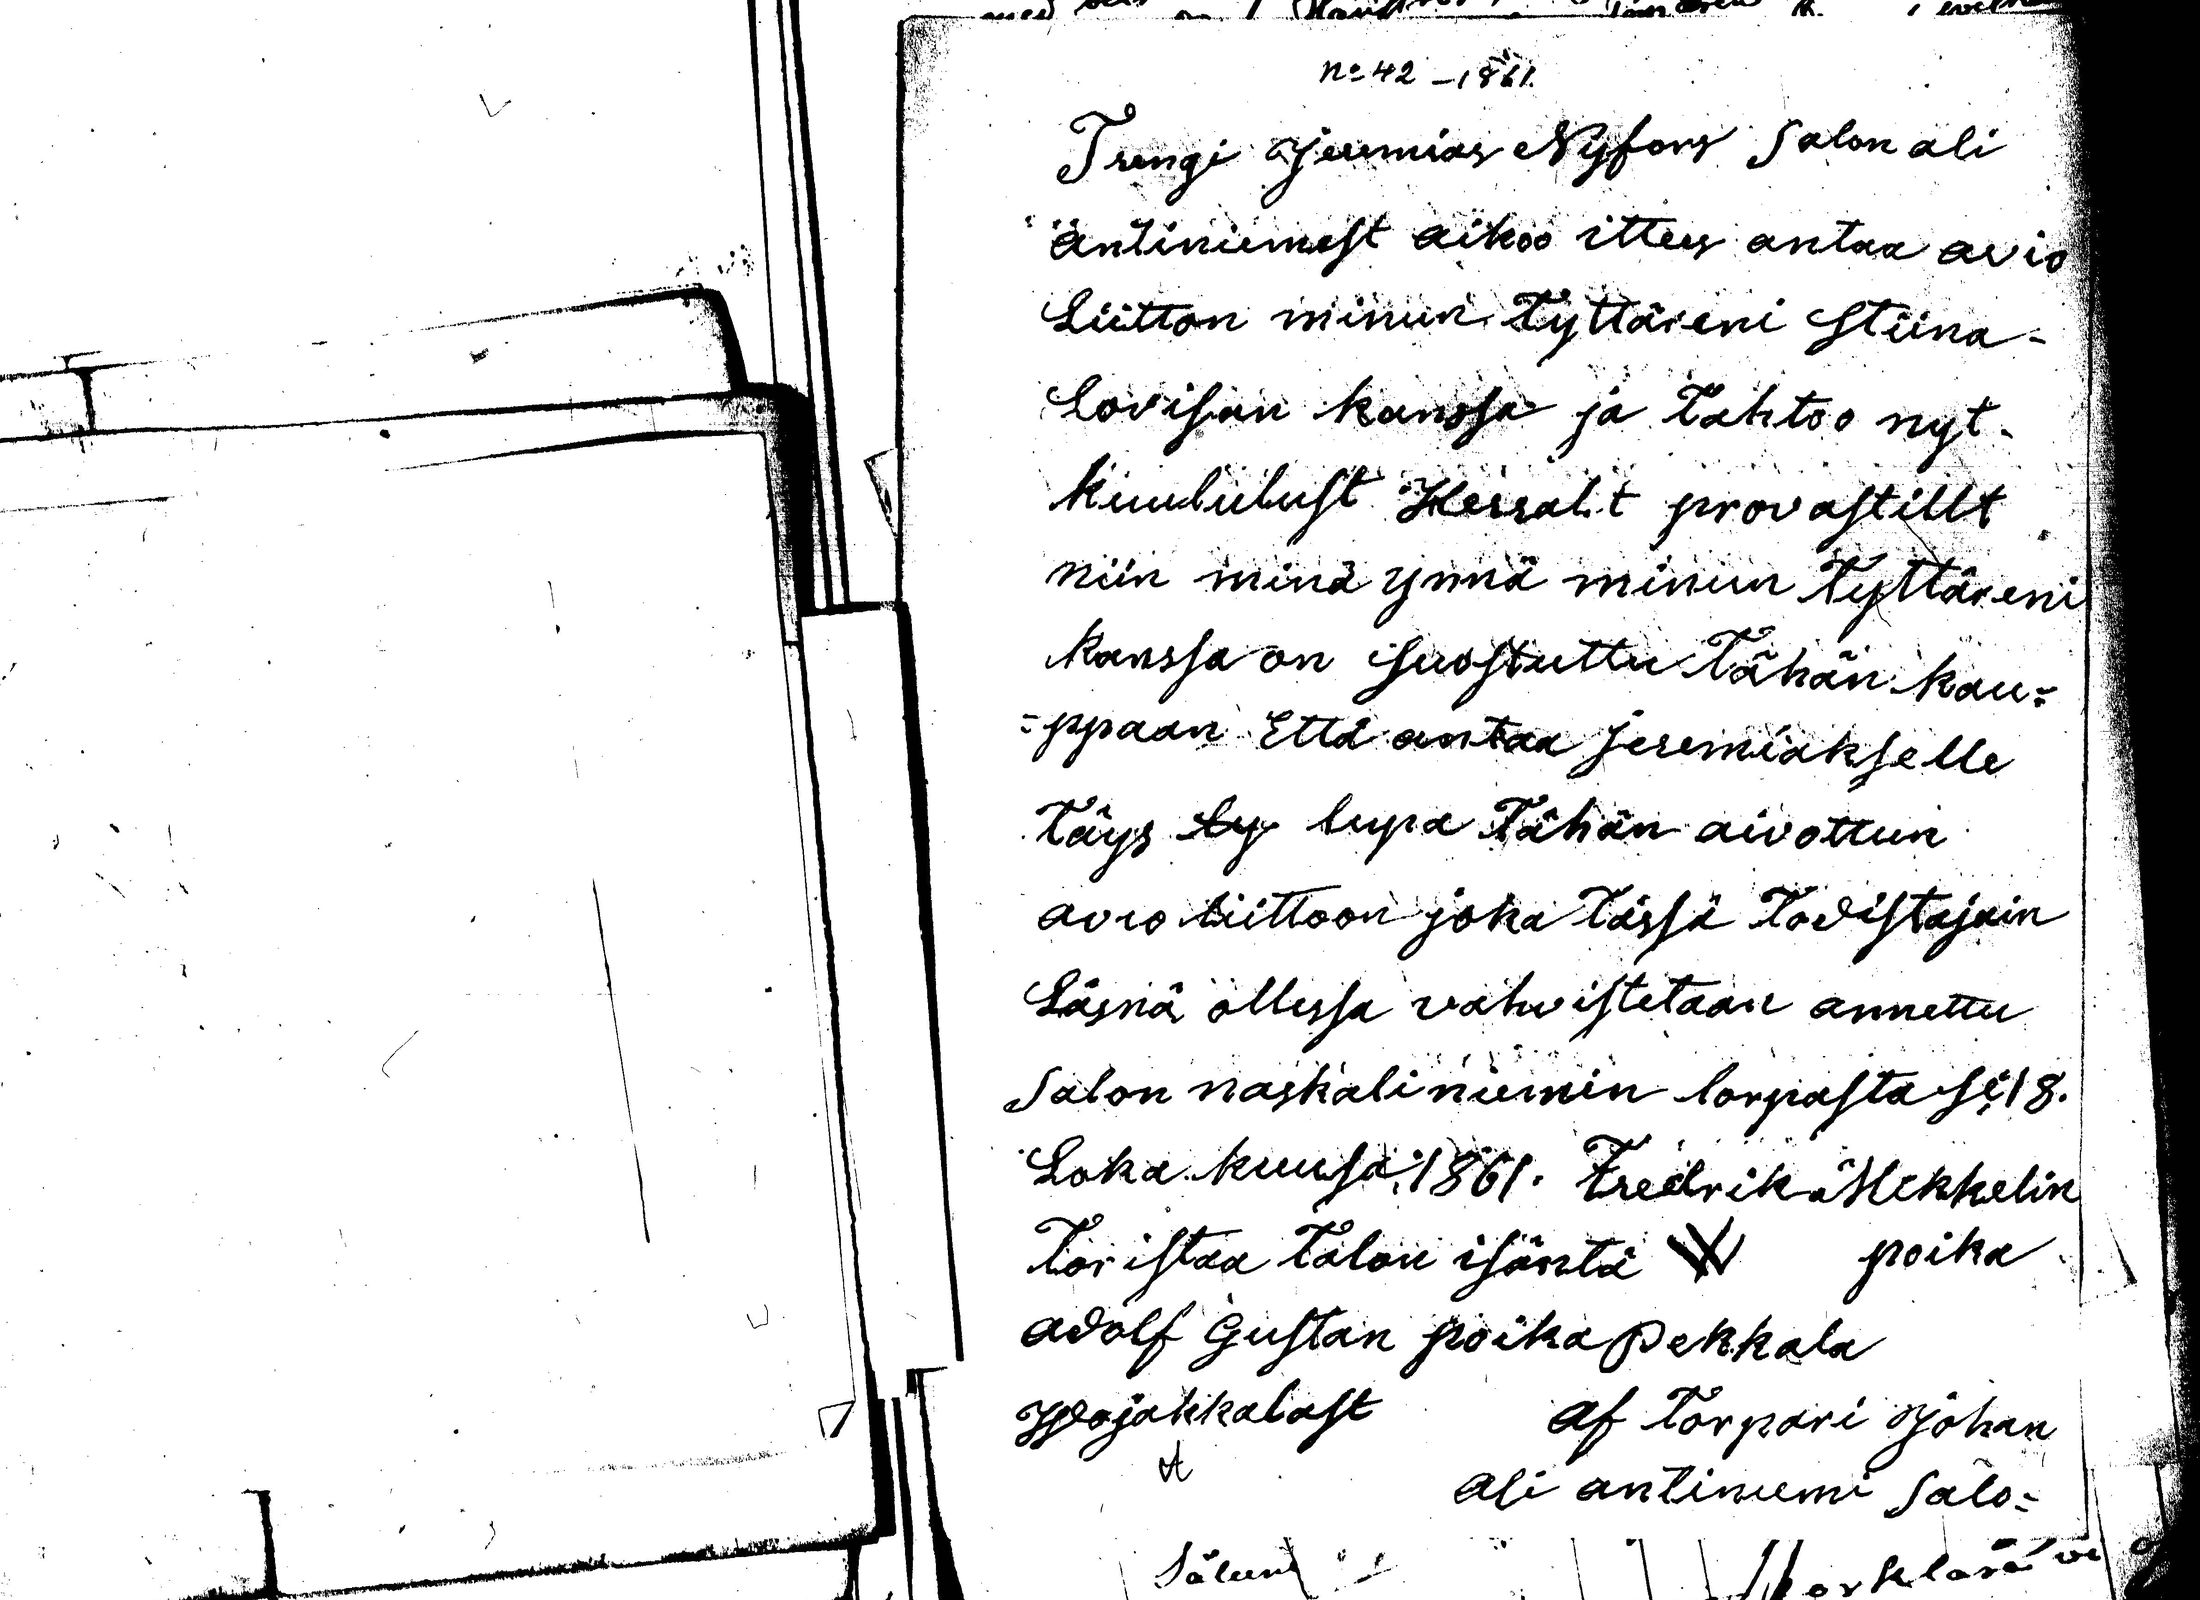 No 42 - 1861.
Trengi Jeremias Nyfors Salon ali
äntiniemest aikoo ittees antaa avio
Liitton minun Tyttäreni Stiina-
Lovisan kanssa ja Tahtoo nyt-
kuulutust Herralt provastillt
niin minä ynnä minun Tyttäreni
kanssa on suostuttu Tähän kau=
=ppaan Että antaa Jeremiakselle
Täys ly lupa Tähän aivottun
avio liittoon joka Tässä Todistajain
Läsnä ollessa vahvistetaan annettu
Salon naskali niemin torpasta se 18.
Loka kuusa 1861. Fredrik Mekkelin
Toristaa Talon isäntä poika
adolf Gustan poika Pekkala
Wojakkalast af Torpari Johan
ali antiniemi Salo=